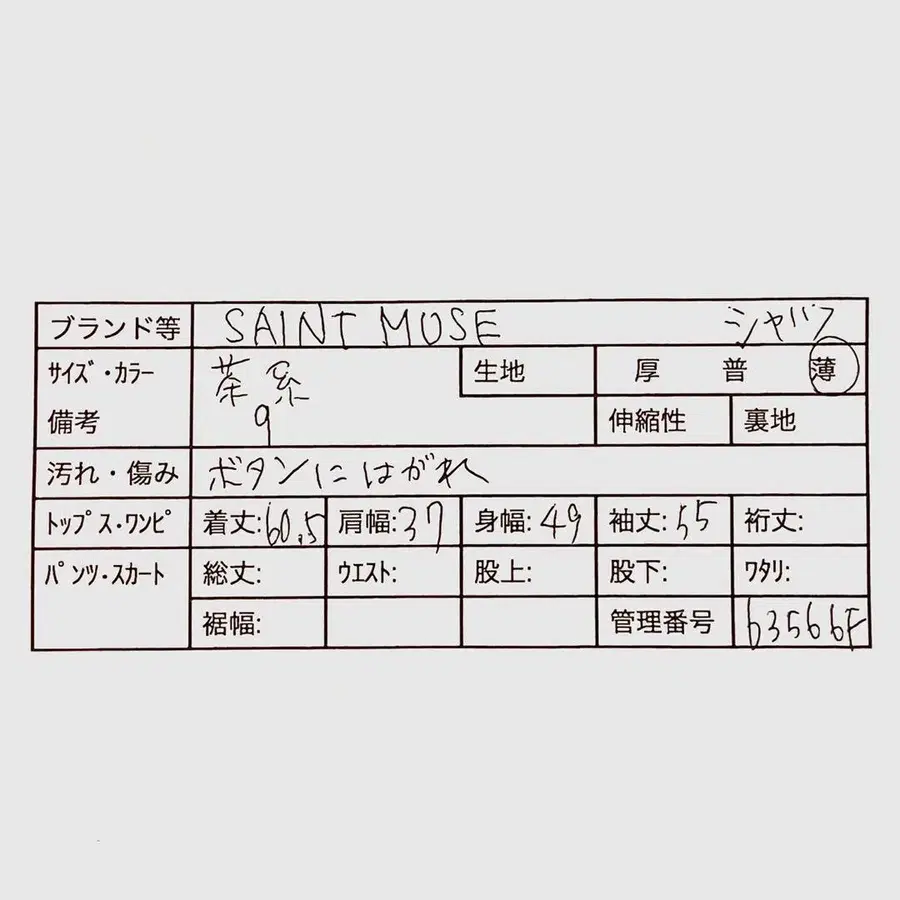 ブランド等 SAINT MUSE シャバス
サイズ・カラー 茶系 生地 厚 普 薄
備考 9 伸縮性 裏地
汚れ・傷み ボタンにはがれ
トップス・ワンピ 着丈:60.5 肩幅:37 身幅:49 袖丈:55 裄丈:
パンツ・スカート 総丈: ウエスト: 股上: 股下: ワタリ:
裾幅: 管理番号 63566F